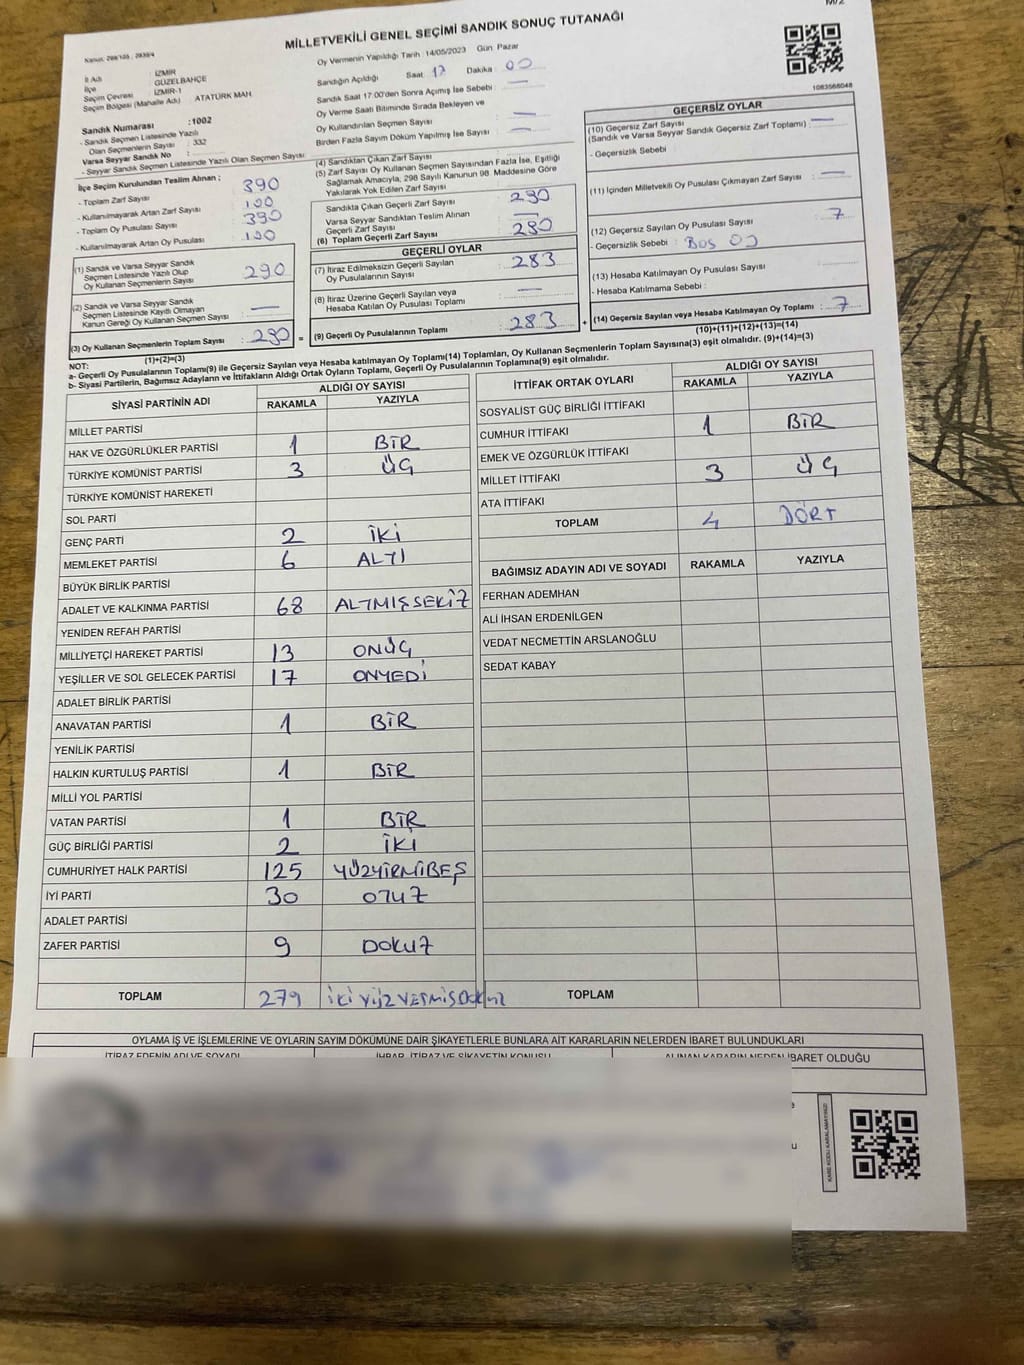 M/2
MİLLETVEKİLİ GENEL SEÇİMİ SANDIK SONUÇ TUTANAĞI
İl Adı : İZMİR
İlçe : GÜZELBAHÇE
Seçim Çevresi : İZMİR-1
Seçim Bölgesi (Mahalle Adı) ATATÜRK MAH.
Oy Vermenin Yapıldığı Tarih : 14/05/2023 Gün Pazar
Sandığın Açıldığı Saat 17 Dakika : 00
Sandık Saat 17:00'den Sonra Açımış İse Sebebi : —
Oy Verme Saati Bitiminde Sırada Bekleyen ve
Oy Kullandırılan Seçmen Sayısı : —
Birden Fazla Sayım Döküm Yapılmış İse Sayısı : —
1083568048
Sandık Numarası : 1002
- Sandık Seçmen Listesinde Yazılı
Olan Seçmenlerin Sayısı : 332
Varsa Seyyar Sandık No :
- Seyyar Sandık Seçmen Listesinde Yazılı Olan Seçmen Sayısı :
İlçe Seçim Kurulundan Teslim Alınan ;
- Toplam Zarf Sayısı : 390
- Kullanılmayarak Artan Zarf Sayısı : 100
- Toplam Oy Pusulası Sayısı : 390
- Kullanılmayarak Artan Oy Pusulası : 100
(1) Sandık ve Varsa Seyyar Sandık
Seçmen Listesinde Yazılı Olup
Oy Kullanan Seçmenlerin Sayısı : 290
(2) Sandık ve Varsa Seyyar Sandık
Seçmen Listesinde Kayıtlı Olmayan
Kanun Gereği Oy Kullanan Seçmen Sayısı : —
(3) Oy Kullanan Seçmenlerin Toplam Sayısı : 290
(1)+(2)=(3)
(4) Sandıktan Çıkan Zarf Sayısı
(5) Zarf Sayısı Oy Kullanan Seçmen Sayısından Fazla İse, Eşitliği
Sağlamak Amacıyla, 298 Sayılı Kanunun 98. Maddesine Göre
Yakılarak Yok Edilen Zarf Sayısı
Sandıkta Çıkan Geçerli Zarf Sayısı : 290
Varsa Seyyar Sandıktan Teslim Alınan
Geçerli Zarf Sayısı : —
(6) Toplam Geçerli Zarf Sayısı : 290
GEÇERLİ OYLAR
(7) İtiraz Edilmeksizin Geçerli Sayılan
Oy Pusulalarının Sayısı : 283
(8) İtiraz Üzerine Geçerli Sayılan veya
Hesaba Katılan Oy Pusulası Toplamı : —
(9) Geçerli Oy Pusulalarının Toplamı : 283
GEÇERSİZ OYLAR
(10) Geçersiz Zarf Sayısı
(Sandık ve Varsa Seyyar Sandık Geçersiz Zarf Toplamı) : —
- Geçersizlik Sebebi :
(11) İçinden Milletvekili Oy Pusulası Çıkmayan Zarf Sayısı : —
(12) Geçersiz Sayılan Oy Pusulası Sayısı : 7
- Geçersizlik Sebebi : BOŞ OY
(13) Hesaba Katılmayan Oy Pusulası Sayısı :
- Hesaba Katılmama Sebebi :
(14) Geçersiz Sayılan veya Hesaba Katılmayan Oy Toplamı : 7
(10)+(11)+(12)+(13)=(14)
NOT:
a- Geçerli Oy Pusulalarının Toplamı(9) ile Geçersiz Sayılan veya Hesaba katılmayan Oy Toplamı(14) Toplamları, Oy Kullanan Seçmenlerin Toplam Sayısına(3) eşit olmalıdır. (9)+(14)=(3)
b- Siyasi Partilerin, Bağımsız Adayların ve İttifakların Aldığı Ortak Oyların Toplamı, Geçerli Oy Pusulalarının Toplamına(9) eşit olmalıdır.
SİYASİ PARTİNİN ADI ALDIĞI OY SAYISI
RAKAMLA YAZIYLA
MİLLET PARTİSİ
HAK VE ÖZGÜRLÜKLER PARTİSİ 1 BİR
TÜRKİYE KOMÜNİST PARTİSİ 3 ÜÇ
TÜRKİYE KOMÜNİST HAREKETİ
SOL PARTİ
GENÇ PARTİ 2 İKİ
MEMLEKET PARTİSİ 6 ALTI
BÜYÜK BİRLİK PARTİSİ
ADALET VE KALKINMA PARTİSİ 68 ALTMIŞSEKİZ
YENİDEN REFAH PARTİSİ
MİLLİYETÇİ HAREKET PARTİSİ 13 ONÜÇ
YEŞİLLER VE SOL GELECEK PARTİSİ 17 ONYEDİ
ADALET BİRLİK PARTİSİ
ANAVATAN PARTİSİ 1 BİR
YENİLİK PARTİSİ
HALKIN KURTULUŞ PARTİSİ 1 BİR
MİLLİ YOL PARTİSİ
VATAN PARTİSİ 1 BİR
GÜÇ BİRLİĞİ PARTİSİ 2 İKİ
CUMHURİYET HALK PARTİSİ 125 YÜZYİRMİBEŞ
İYİ PARTİ 30 OTUZ
ADALET PARTİSİ
ZAFER PARTİSİ 9 DOKUZ
TOPLAM 279 İKİ YÜZ YETMİŞ DOKUZ
İTTİFAK ORTAK OYLARI ALDIĞI OY SAYISI
RAKAMLA YAZIYLA
SOSYALİST GÜÇ BİRLİĞİ İTTİFAKI
CUMHUR İTTİFAKI 1 BİR
EMEK VE ÖZGÜRLÜK İTTİFAKI
MİLLET İTTİFAKI 3 ÜÇ
ATA İTTİFAKI
TOPLAM 4 DÖRT
BAĞIMSIZ ADAYIN ADI VE SOYADI RAKAMLA YAZIYLA
FERHAN ADEMHAN
ALİ İHSAN ERDENİLGEN
VEDAT NECMETTİN ARSLANOĞLU
SEDAT KABAY
TOPLAM
OYLAMA İŞ VE İŞLEMLERİNE VE OYLARIN SAYIM DÖKÜMÜNE DAİR ŞİKAYETLERLE BUNLARA AİT KARARLARIN NELERDEN İBARET BULUNDUKLARI
İTİRAZ EDENİN ADI VE SOYADI İHBAR, İTİRAZ VE ŞİKAYETİN KONUSU ALINAN KARARIN NEDEN İBARET OLDUĞU
KARE KODU KARALAMAYINIZ!